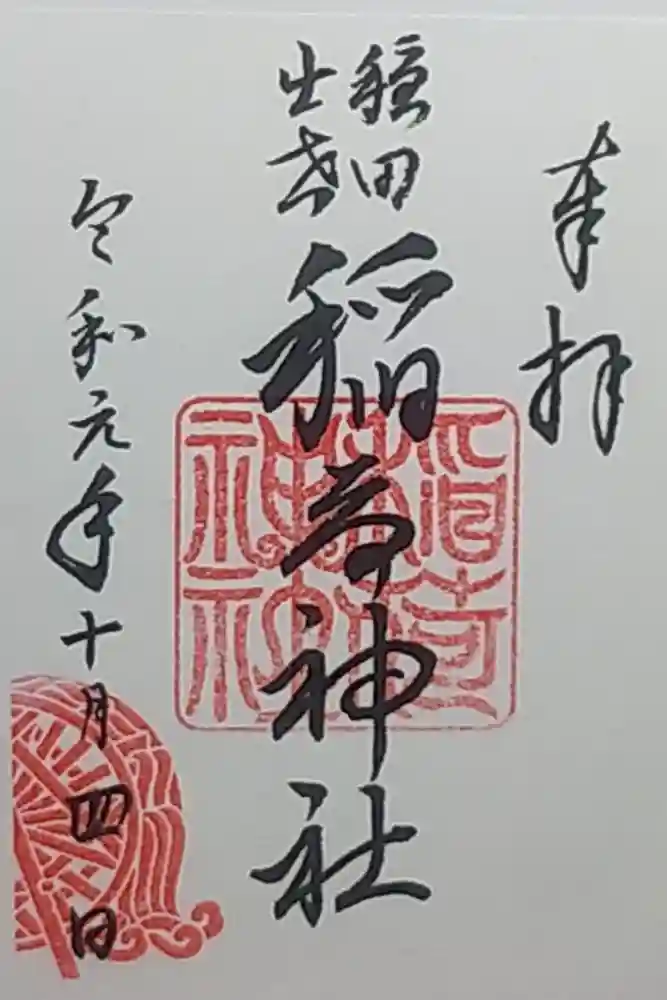 奉拝
穏田
出世
稲荷神社
令和元年十月四日
稲荷
神社